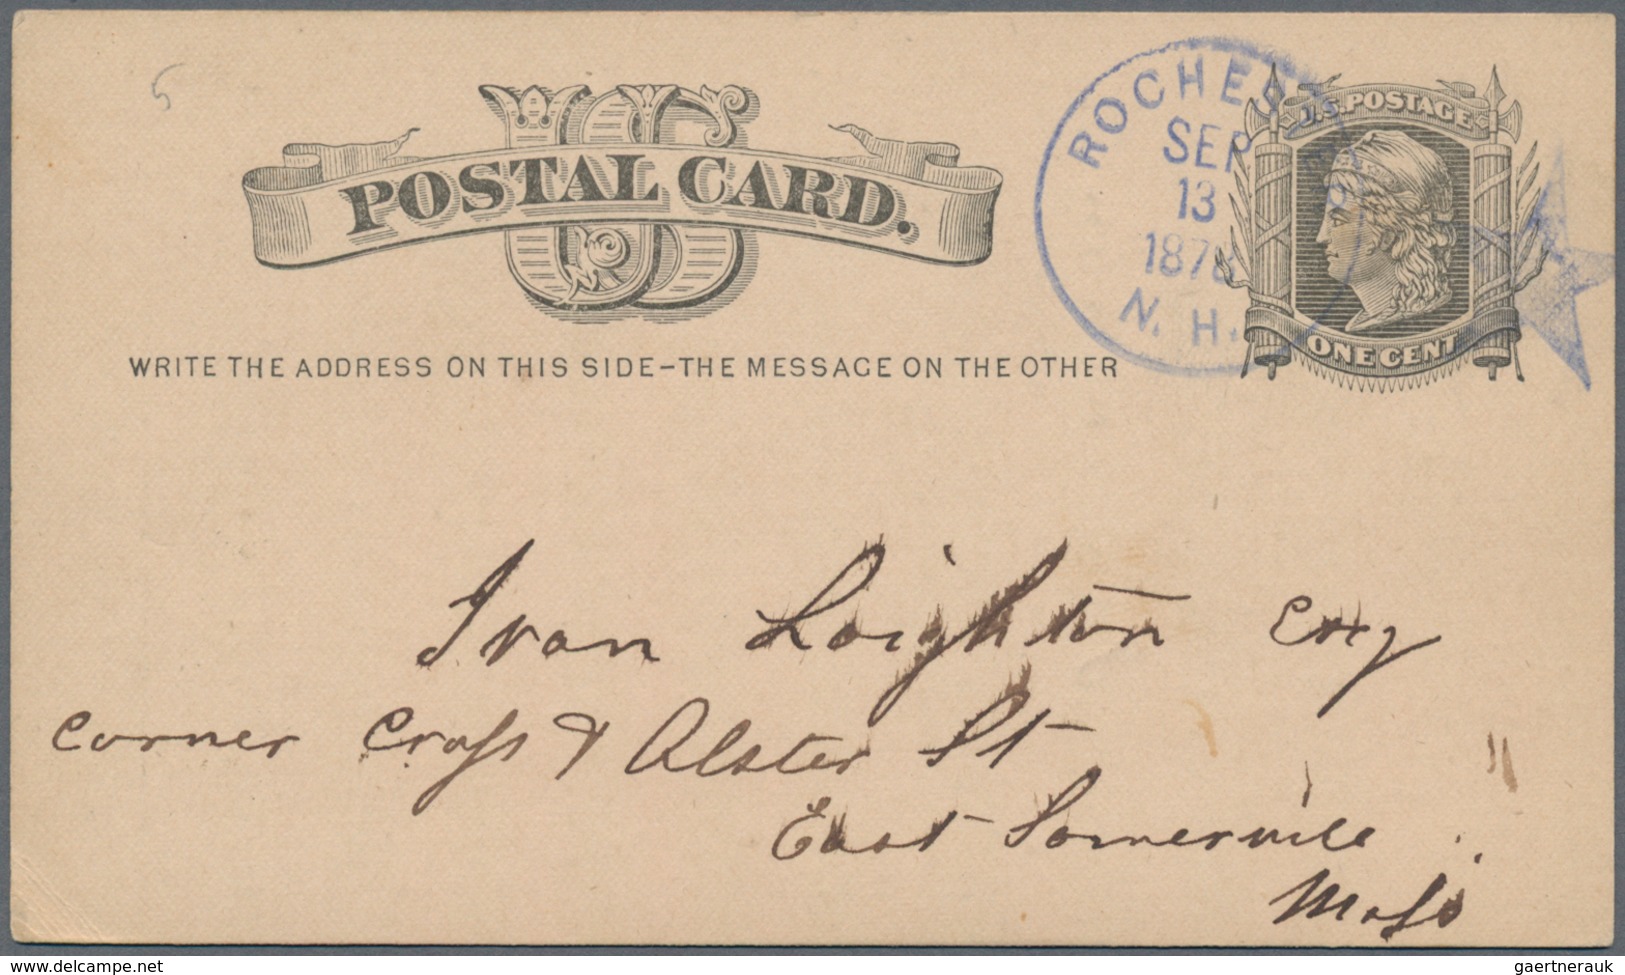 US
POSTAL CARD.
WRITE THE ADDRESS ON THIS SIDE–THE MESSAGE ON THE OTHER
ROCHESTER
SEP
13
1878
N. H.
U.S. POSTAGE
ONE CENT
Ivan Leighton Esq
Corner Cross & Alster St
East Somerville
Mass
www.delcampe.net
gaertnerauk